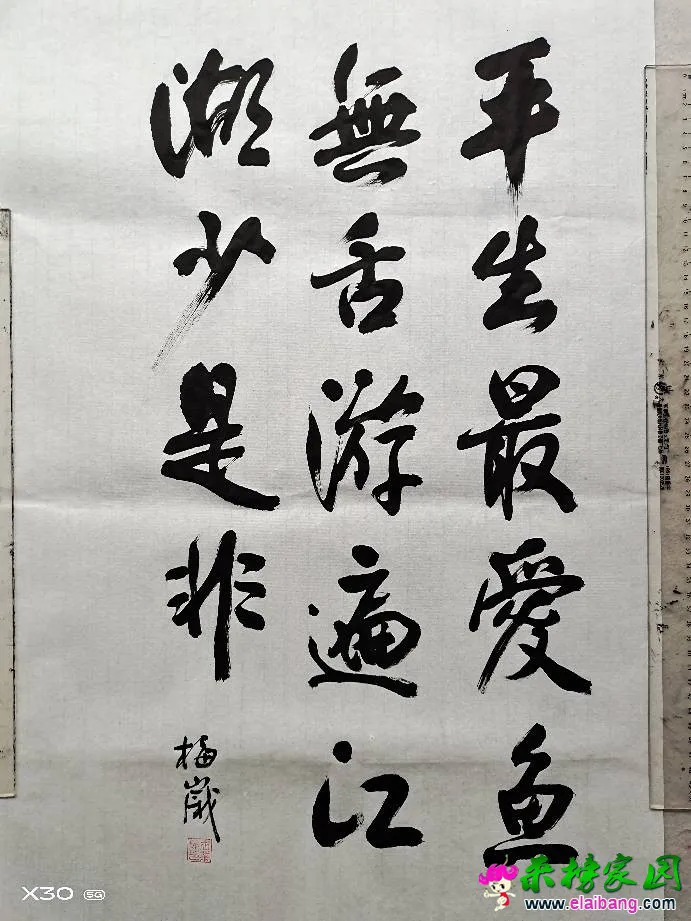 平生最愛鱼
無舌游遍江
湖少是非
梅嵗
X30 5G
来榜家园
www.elaibang.com